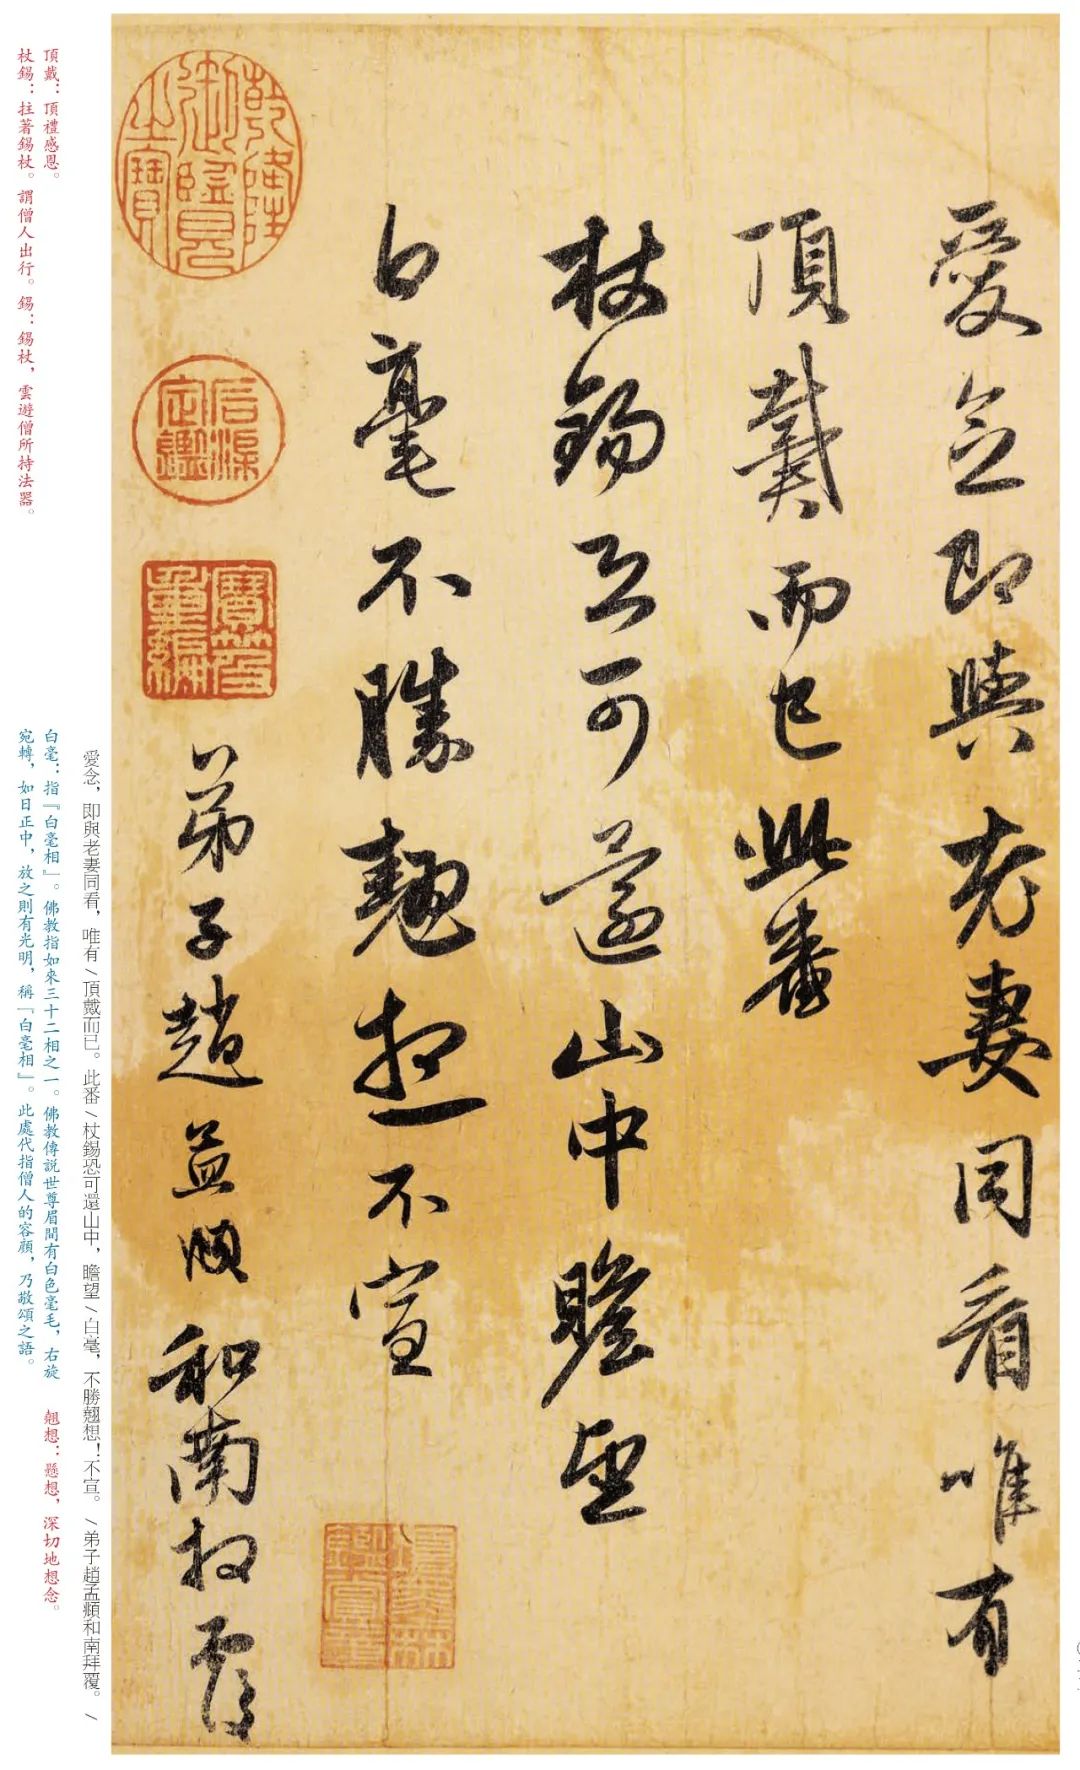 愛念即與老妻同看唯有
頂戴而已此番
杖錫恐可還山中瞻望
白毫不勝翹想不宣
弟子趙孟頫和南拜覆
項墨林
鑑賞章
乾隆
御覽
之寶
石渠
定鑑
寶笈
重編
愛念，即與老妻同看，唯有／頂戴而已。此番／杖錫恐可還山中，瞻望／白毫，不勝翹想！不宣。／弟子趙孟頫和南拜覆。／
頂戴：頂禮感恩。
杖錫：拄著錫杖。謂僧人出行。錫：錫杖，雲遊僧所持法器。
白毫：指『白毫相』。佛教指如來三十二相之一。佛教傳説世尊眉間有白色毫毛，右旋
宛轉，如日正中，放之則有光明，稱『白毫相』。此處代指僧人的容顔，乃敬頌之語。
翹想：懸想，深切地想念。